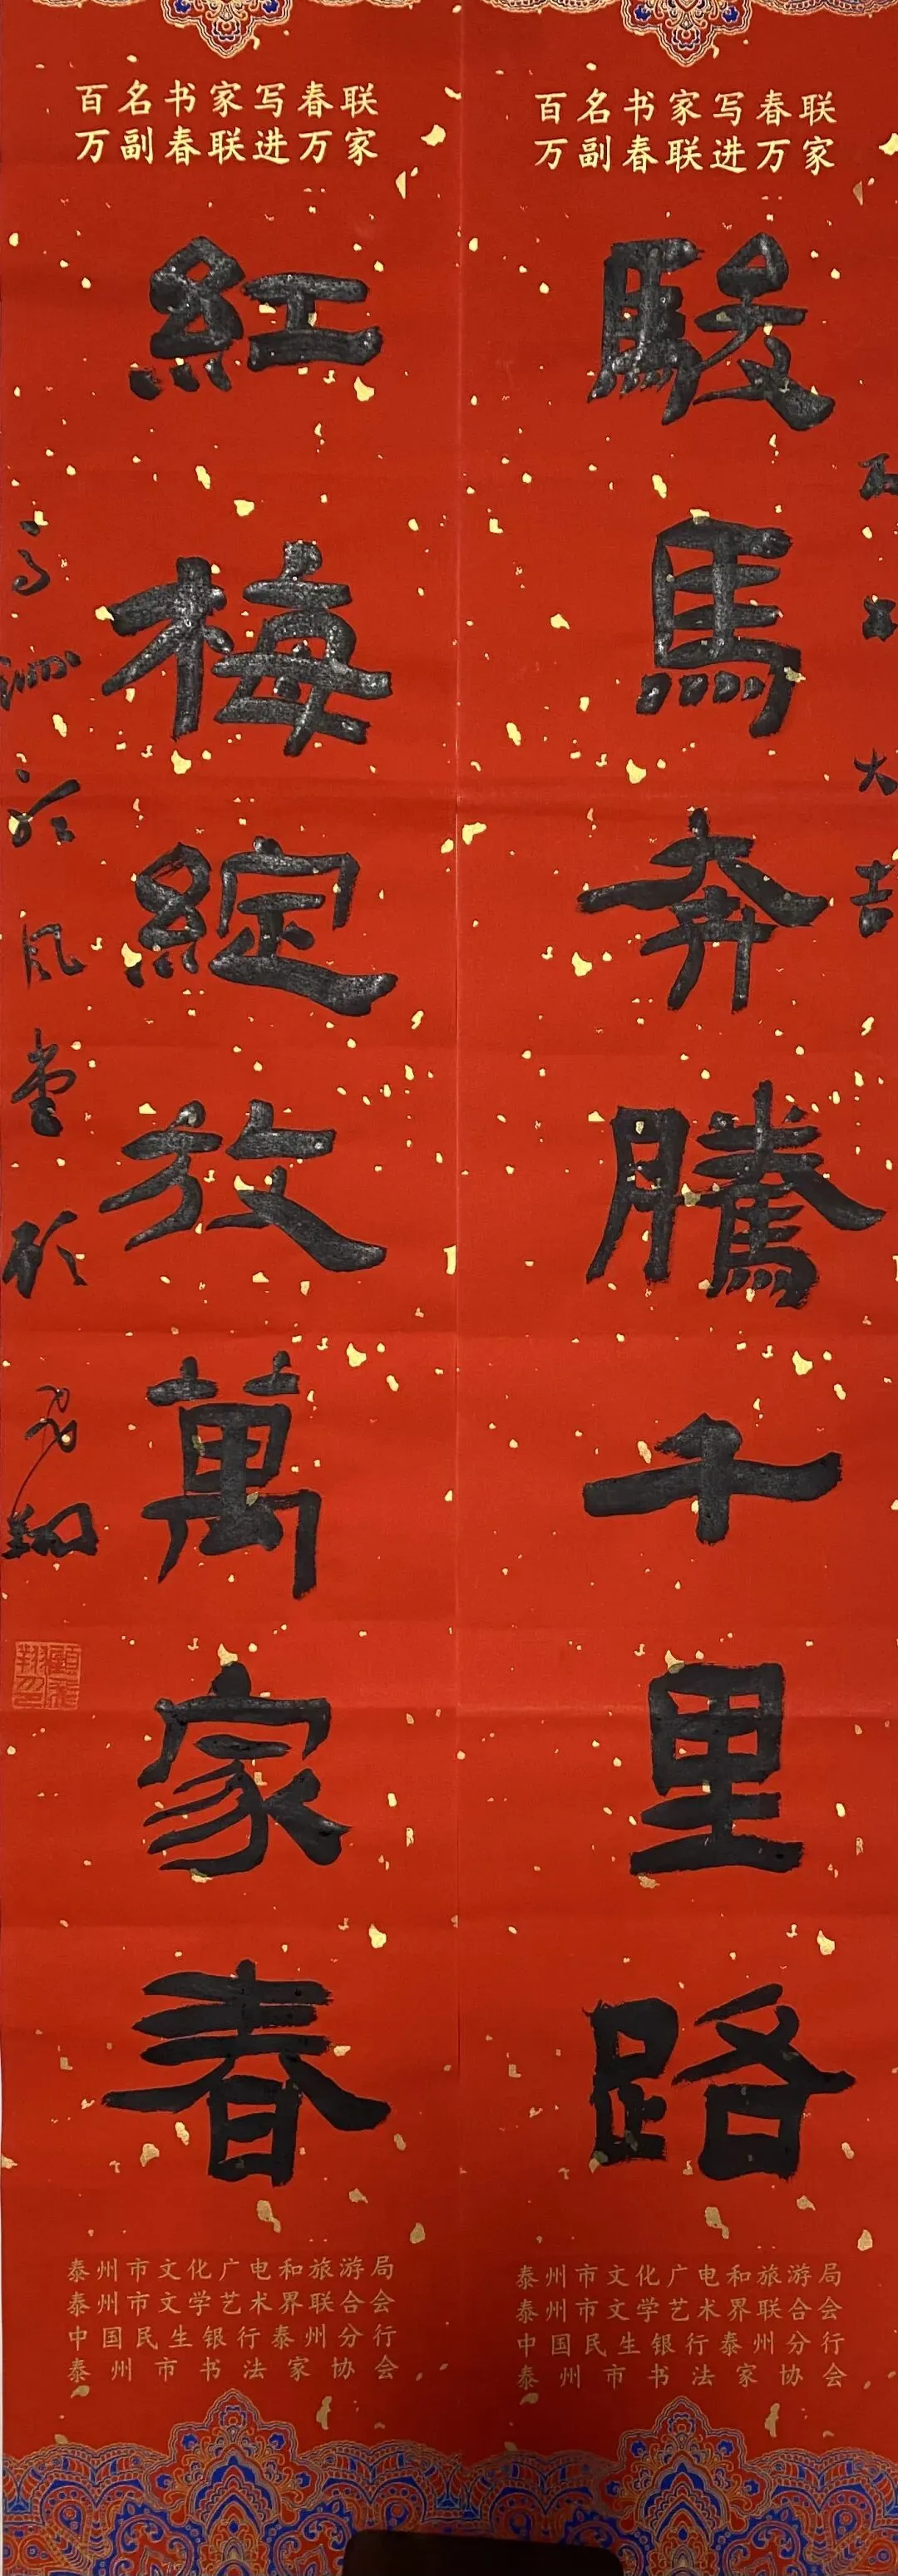 百名书家写春联
万副春联进万家
丙午大吉
駿馬奔騰千里路
泰州市文化广电和旅游局
泰州市文学艺术界联合会
中国民生银行泰州分行
泰州市书法家协会
百名书家写春联
万副春联进万家
紅梅綻放萬家春
风堂
泰州市文化广电和旅游局
泰州市文学艺术界联合会
中国民生银行泰州分行
泰州市书法家协会